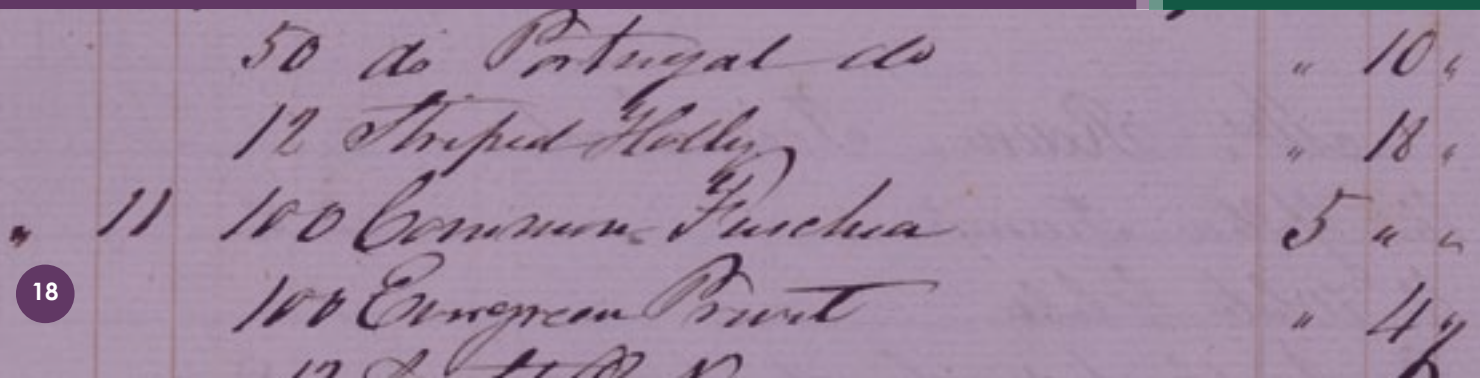 50 do Portugal do " 10 "
12 Striped Holly " 18 "
" 11 100 Common Fuschia 5 " "
18
100 Evergreen Privit " 4
12